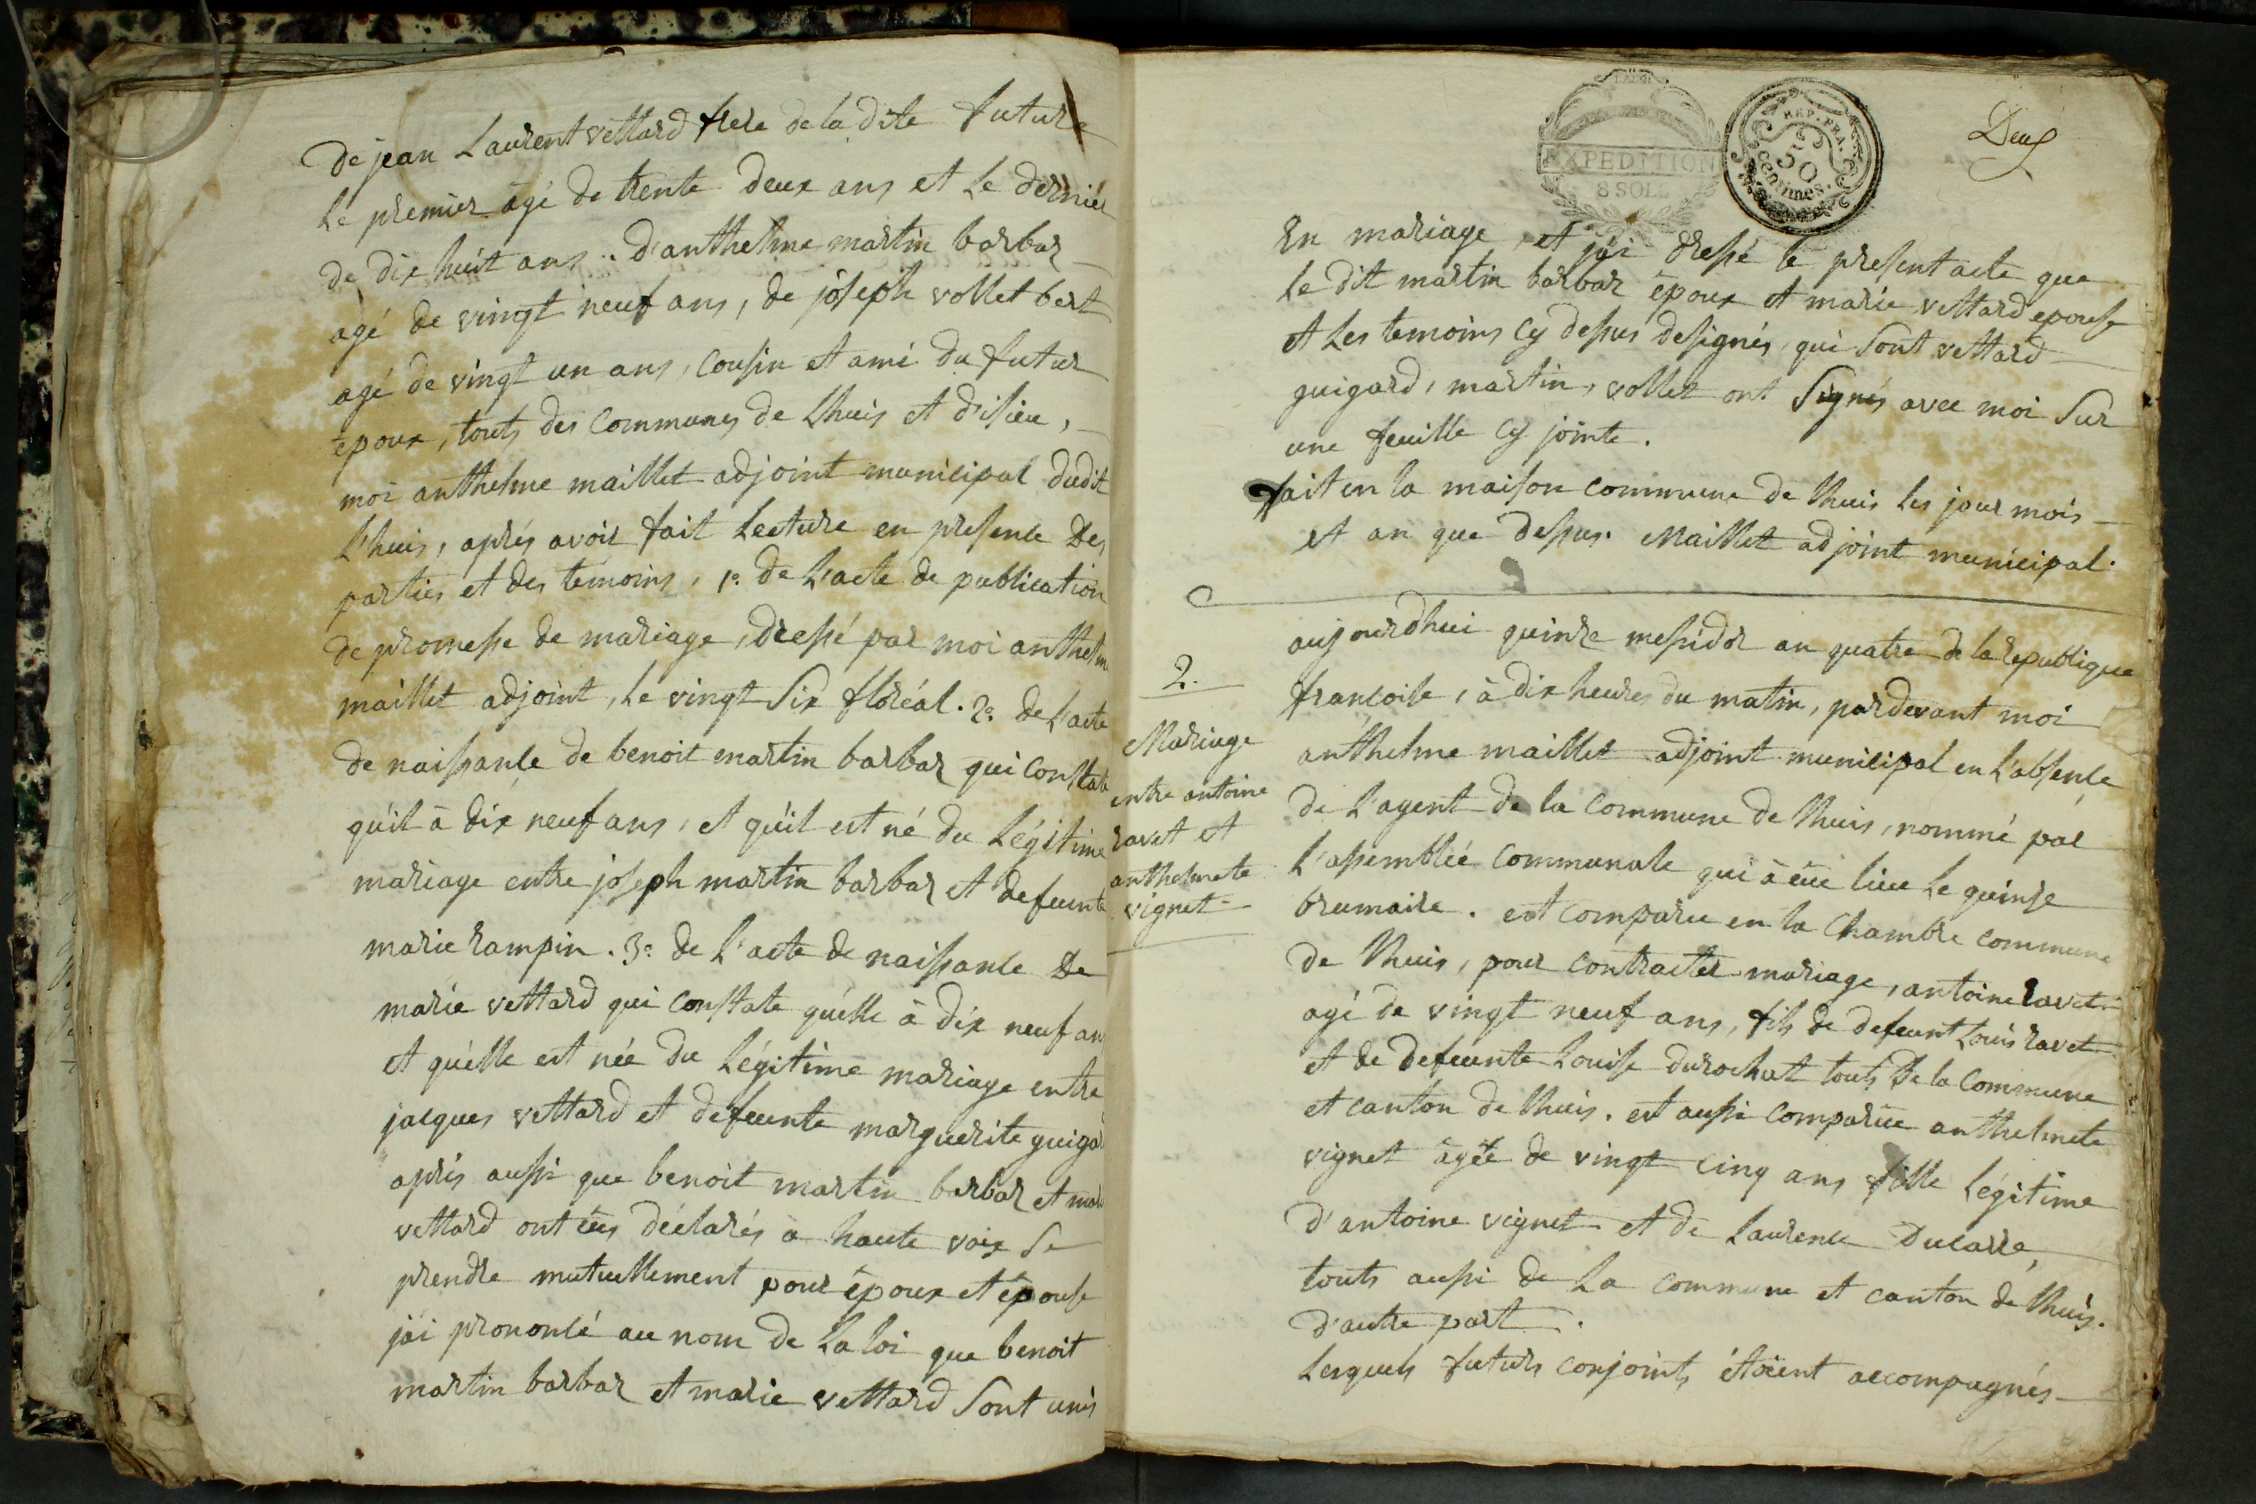 de jean Laurent vettard frere de la dite future
le premier agé de trente deux ans et le dernier
de dix huit ans .. d'anthelme martin barbar
agé de vingt neuf ans, de joseph vollet bert
agé de vingt un ans, cousin et ami du futur
epoux, touts des communes de Lhuis et d'isieu,
moi anthelme maillet adjoint municipal dudit
L'huis, aprés avoir fait lecture en presence des
parties et des temoins, 1º. de L'acte de publication
de promesse de mariage, dressé par moi anthelme
maillet adjoint, le vingt six floréal. 2º. de L'acte
de naissance de benoit martin barbar qui constate
qu'il à dix neuf ans, et qu'il est né du Légitime
mariage entre joseph martin barbar et defeunte
marie rampin. 3º. de L'acte de naissance de
marie vettard qui constate qu'elle à dix neuf an
et qu'elle est née du Légitime mariage entre
jacques vettard et defeunte marguerite guigar
aprés aussi que benoit martin barbar et mari
vettard ont eus déclarés à haute voix se
prendre mutuellement pour époux et épouse
j'ai prononcé au nom de la loi que benoit
martin barbar et marie vettard sont unis
EXPEDITION
8 SOLS
REP. FRA.
50
centimes.
Deux
En mariage, et j'ai dressé le present acte que
le dit martin barbar époux et marie vettard epouse
et les temoins cy dessus designés, qui sont vettard
guigard, martin, vollet ont signés avec moi sur
une feuille cy jointe.
fait en la maison commune de Lhuis les jour mois
et an que dessus. Maillet adjoint municipal.
2.
Mariage
entre antoine
ravet et
anthelmete
vignet
aujourdhui quinze messidor an quatre de la republique
francoise, à dix heures du matin, pardevant moi
anthelme maillet adjoint municipal en L'absence
de L'agent de la commune de Lhuis, nommé par
L'assemblée communale qui à eue lieu le quinze
brumaire. est comparu en la chambre commune
de Lhuis, pour contracter mariage, antoine ravet
agé de vingt neuf ans, fils de defeunt Louis ravet
et de defeunte Louise durochat touts de la commune
et canton de Lhuis. est aussi comparue anthelmete
vignet agée de vingt cinq ans fille légitime
d'antoine vignet et de Laurence Ducarre,
touts aussi de La commune et canton de Lhuis.
d'autre part.
Lesquels futurs conjoints étoient accompagnés